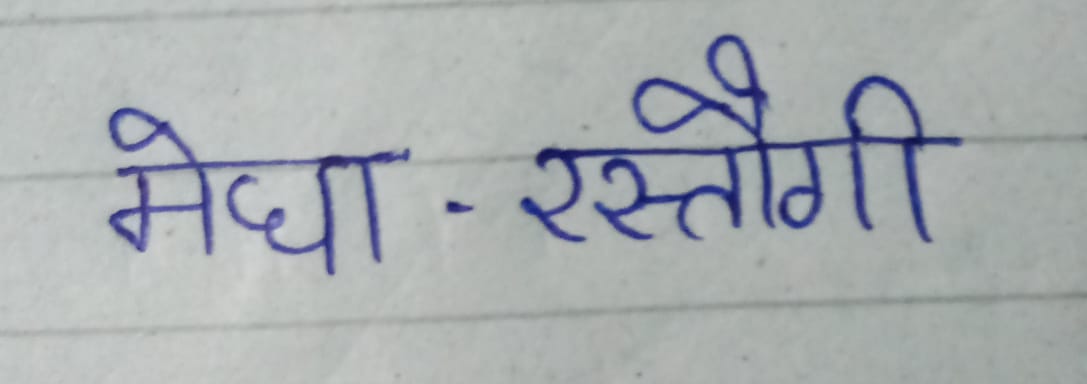 मेघा - रस्तौगी